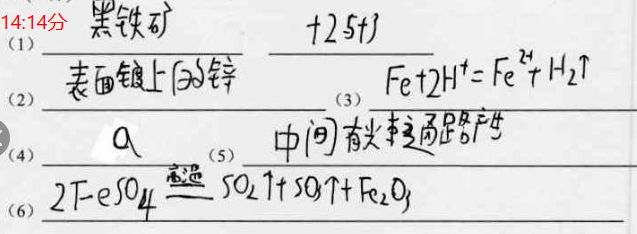 14:14分
(1) 黑铁矿 +2 5+3
(2) 表面镀上的锌 (3) Fe+2H⁺=Fe²⁺+H₂↑
(4) a (5) 中间有光亮通路产生
(6) 2FeSO₄ 高温 SO₂↑+SO₃↑+Fe₂O₃